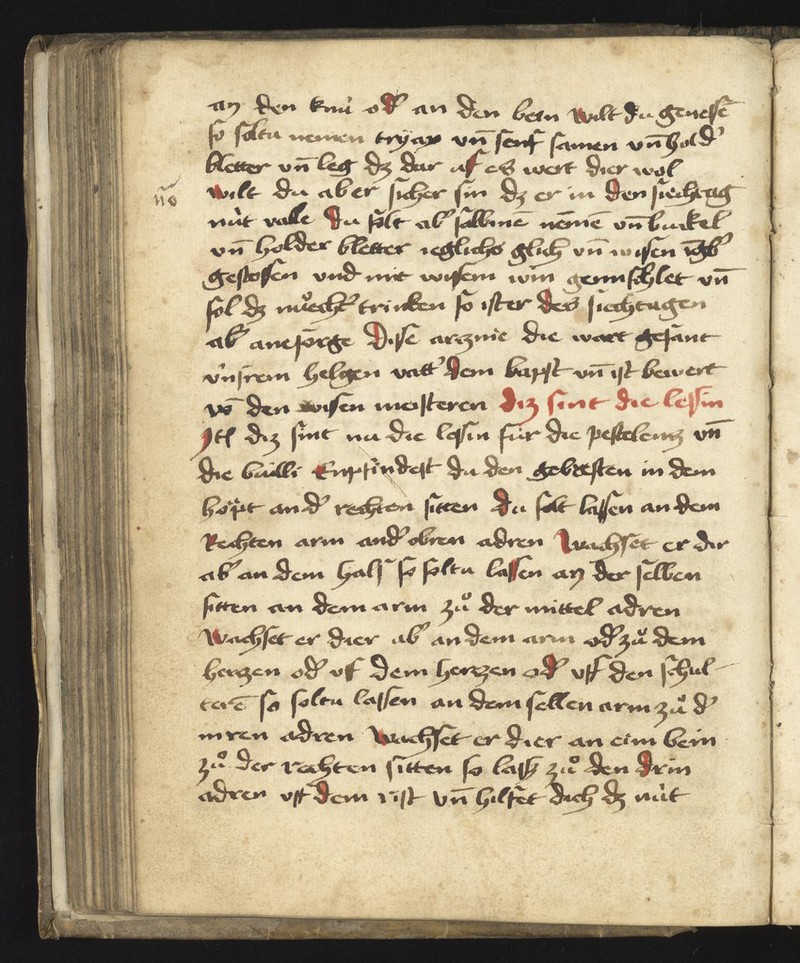 an den knü od' an den bein wilt du genesē
so soltu nemen tryax vn̄ senf samen vn̄ hold'
bletter vn̄ leg dz dar uf es wert dier wol
no̅ wilt du aber sicher sin dz er in den siechtag
nüt valle du solt ab' salbinē nemē vn̄ buckel
vn̄ holder bletter ieglichs glich vn̄ wisen
gestossen und mit wissem win gemischlet vn̄
sol dz nüecht' trinken so ist er des siechtagen
ab' ane sorge Disse arznie die wart gesant
vnsrem helgen vatt' dem bapst vn̄ ist bewert
vō den wisen meisteren diz sint die lessin
Itē diz sint nu die lessin für die pestelenz vn̄
die bülli Enpfindest du den gebresten in dem
hopt an d' rechten sitten du solt lassen an dem
Rechten arm an d' obren adren Wachset er dir
ab' an dem hals so soltu lassen an der selben
sitten an dem arm zů der mittel adren
Wachset er dier ab' an dem arm od' zů dem
herzen od' uf dem herzzen od' uff den schul-
terē so soltu lassen an dem sellen arm zů d'
inren adren Wachset er dier an eim bein
zů der rechten sitten so lass zů den drin
adren uff dem rist vn̄ hilfet dich dz nüt